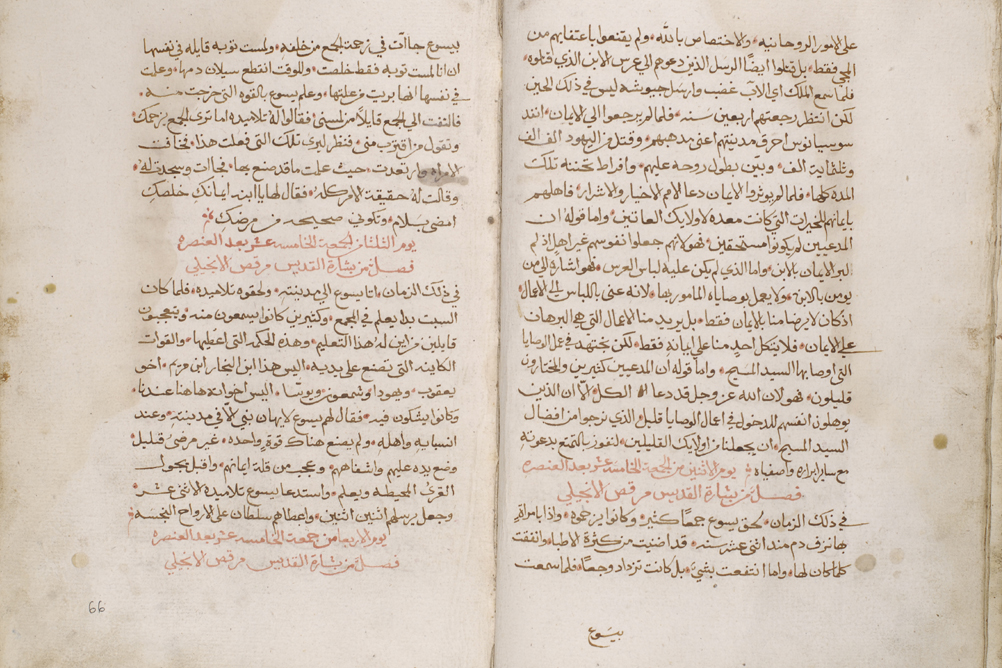 على الامور الروحانيه والاختصاص بالله ولم يقنعوا باعتفايهم من
المجي فقط بل قتلوا ايضًا الرسل الذين دعوهم الي عرس الابن الذي قتلوه
فلما سمع الملك اي الاب غضب وارسل جيوشه ليس في ذلك الحين
لكن انتظر رجعتهم اربعين سنه فلما لم يرجعوا الي الايمان انفذ
سوسبيانوس احرق مدينتهم اعني مدهبهم وقتل من اليهود الف الف
وثلثماية الف وبين بطول روحه عليهم وافراط تحننه تلك
المده كلها فلما لم يوثروا الايمان دعا الامم الاخيار والاشرار فاهلهم
بايمانهم للخيرات التي كانت معده لاولايك العاتين واما قوله ان
المدعيين لم يكونوا مستحقين فهولانهم جعلوا نفوسهم غير اهل اذ لم
الايمان بالابن واما الذي لم يكن عليه لباس العرس فهو اشاره الي من
يومن بالابن ولا يعمل بوصاياه المامور بها لانه عني باللباس الي الاعمال
اذ كان لا يرضا منا بالايمان فقط بل يريد منا الاعمال التي هي البرهان
على الايمان فلا يتكل احد منا على ايمانه فقط لكن نجتهد في عمل الوصايا
التي اوصا بها السيد المسيح واما قوله ان المدعيين كثيرين والمختارون
قليلون فهولان الله عز وجل قد دعا الكل الا ان الذين
يوهلون انفسهم للدخول في اعمال الوصايا قليل الذي نرجوا من افضال
السيد المسيح ان يجعلنا من اولايك القليلين لنفوز بالتمتع بدعوته
مع ساير ابراره واصفياه يوم الاثنين من الجمعة الخامسه عشر بعد العنصره
فصل من بشارة القديس مرقص الانجيلي
في ذلك الزمان لحق يسوع جمعًا كثير وكانوا يزحموه واذا بامراه
بها نزف دم مند اثني عشر سنه قد اضنيت من كثرة الاطبا وانفقت
كلما كان لها وما انتفعت بشي بل كانت تزداد وجعا فلما سمعت
يسوع
بيسوع جاات في زحمة الجمع من خلفه ولمست ثوبه قايله في نفسها
ان انا لمست ثوبه فقط خلصت وللوقت انقطع سيلان دمها وعلمت
في نفسها انها بريت من علتها وعلم يسوع بالقوه التي خرجت منه
فالتفت الي الجمع قايلًا من لمسني فقالوا له تلاميده اما تري الجمع يزحمك
وتقول من اقترب مني فنظر ليري تلك التي فعلت هذا فخافت
الامراه وارتعدت حيث علمت ما قد صنع بها فجاات وسجدت له
وقالت له حقيقة الامر كله فقال لها يا ابنه ايمانك خلصك
امضي بسلام وتكوني صحيحه من مرضك
يوم الثلثا من الجمعة الخامسه عشر بعد العنصره
فصل من بشارة القديس مرقص الانجيلي
في ذلك الزمان اتا يسوع الي مدينته ولحقوه تلاميده فلما كان
السبت بدا يعلم في المجمع وكثيرين كانوا يسمعون منه ويتعجبون
قايلين من اين له هذا التعليم وهذه الحكمه التي اعطيها والقوات
الكاينه التي تصنع على يديه اليس هذا ابن النجار ابن مريم اخو
يعقوب ويهودا وشمعون ويوسّا اليس اخواته هاهنا عندنا
وكانوا يشكون فيه فقال لهم يسوع لا يهان نبي الا في مدينته وعند
انسبايه واهله ولم يصنع هناك قوة واحده غير مرضي قليل
وضع يده عليهم واشفاهم وعجب من قلة ايمانهم واقبل يجول
القري المحيطه ويعلم واستدعا يسوع تلاميده الاثني عشر
وجعل يرسلهم اثنين اثنين واعطاهم سلطان على الارواح النجسه
يوم الاربعا من جمعت الخامسه عشر بعد العنصره
فصل من بشارة القديس مرقص الانجيلي
66